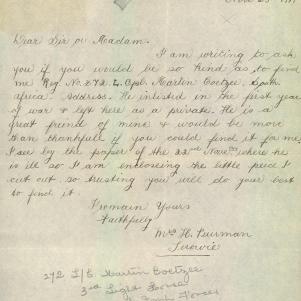 Dear Sir or Madam.
I am writing to ask
you if you would be so kind as to find
me Reg. No. 272. L. Cpl. Martin Coetzee, South
africa. Address. He inlisted in the first year
of war & left here as a private. He is a
great friend of mine & would be more
than thankfull if you could find it for me,
I see by the paper of the 22nd Novr where he
is ill so I am inclosing the little piece I
cut out so trusting you will do your best
to find it.
I remain Yours
Faithfully
Mrs H. Purman
272 L/C Martin Coetzee
3rd Light Horse
Forces